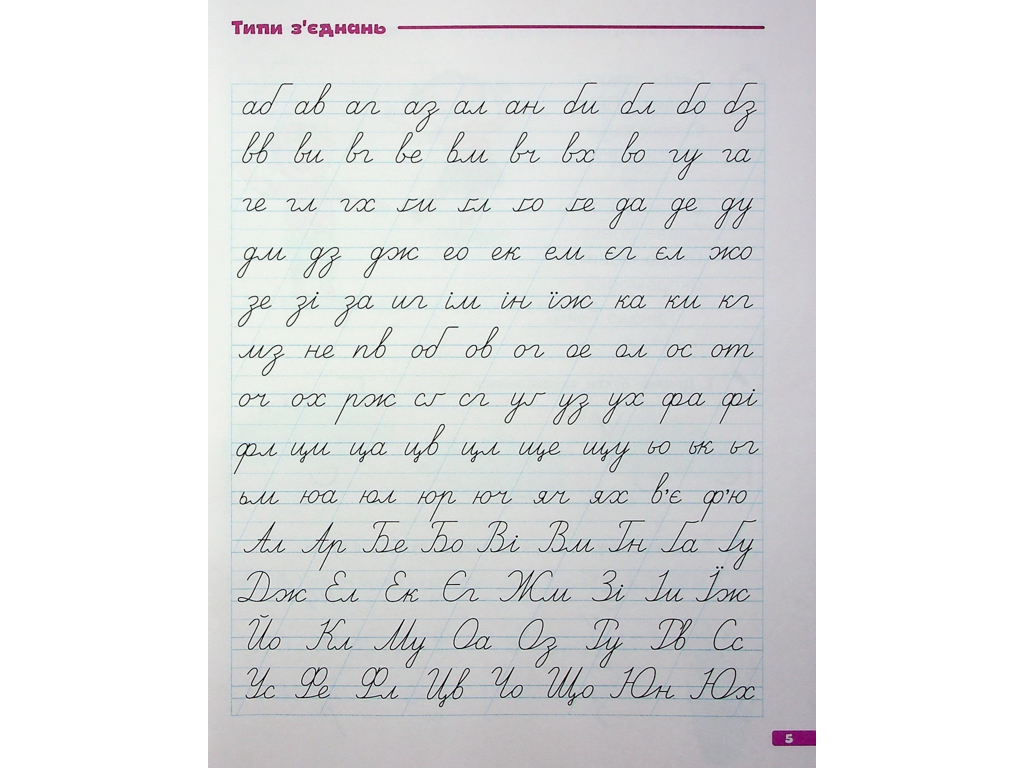 Типи з'єднань
аб ав аг аз ал ан би бл бо бз
вв ви вг ве вм вч вх во гу га
ге гл гх ґи ґл ґо ґе да де ду
дм дз дж ео ек ем єг єл жо
зе зі за иг ім ін їж ка ки кг
мз не пв об ов ог ое ол ос от
оч ох рж сґ сг уґ уз ух фа фі
фл ци ца цв цл ще щу ьо ьк ьг
ьм юа юл юр юч яч ях в'є ф'ю
Ал Ар Бе Бо Ві Вм Гн Ґа Ґу
Дж Ел Ек Єг Жм Зі Іи Їж
Йо Кл Му Оа Оз Ру Рв Сс
Ус Фе Фл Цв Чо Що Юн Юх
5